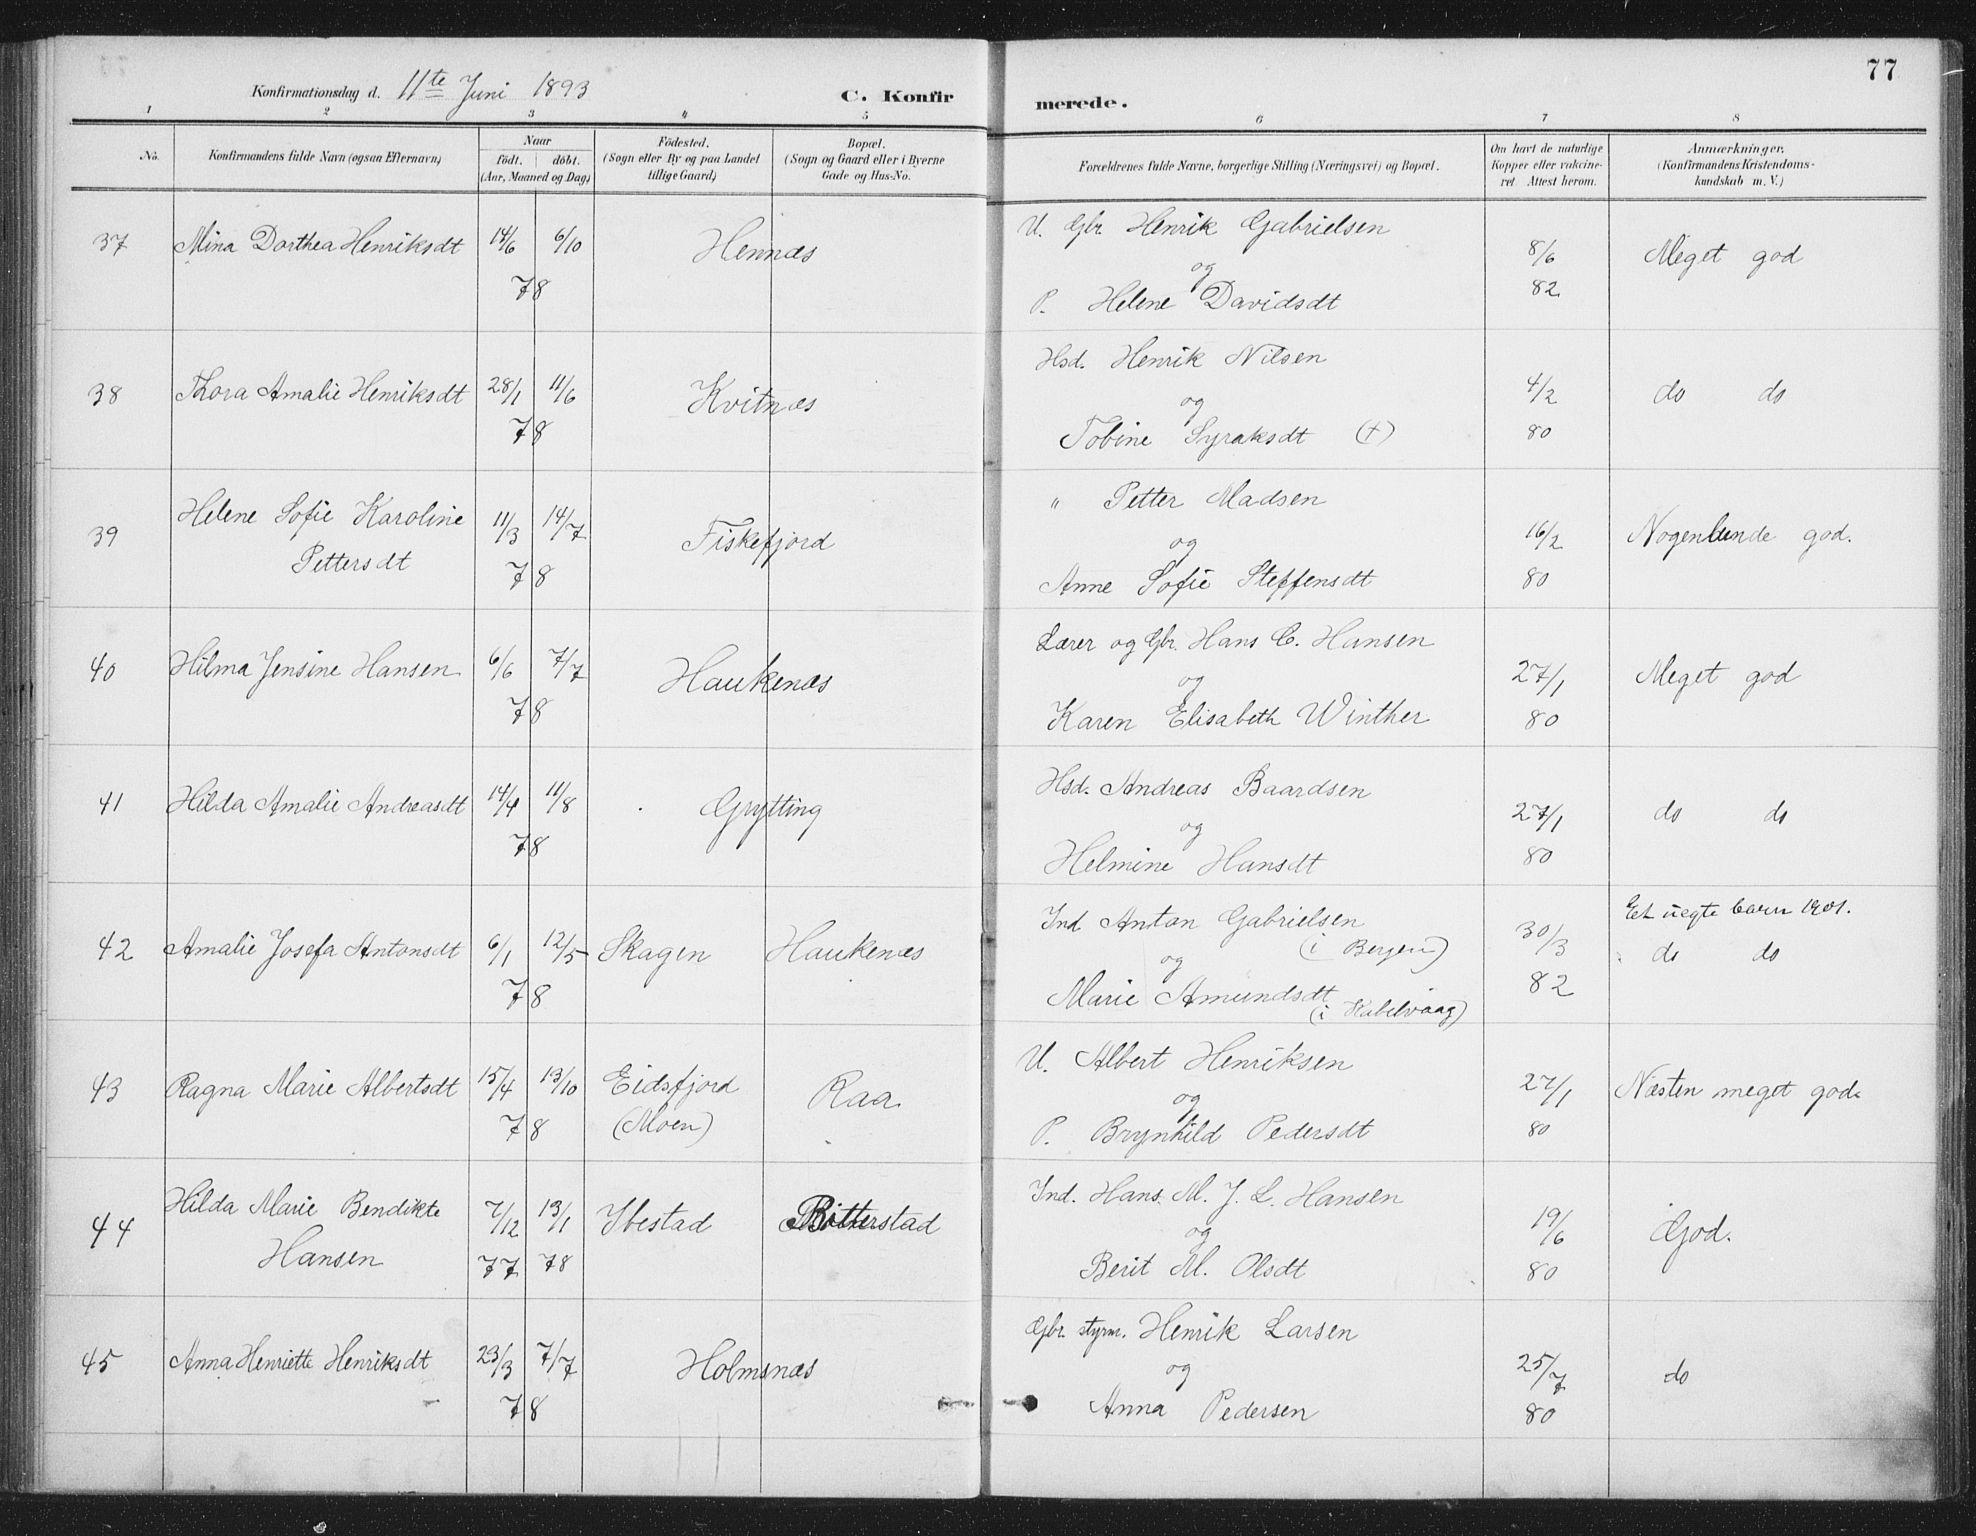 77
Konfirmationsdag d. 11te Juni 1893 C. Konfirmerede.
1 2 3 4 5 6 7 8
No. Konfirmandens fulde Navn (ogsaa Efternavn) Naar født. døbt. (Aar, Maaned og Dag) Fødested. (Sogn eller By og paa Landet tillige Gaard) Bopæl. (Sogn og Gaard eller i Byerne Gade og Hus-No. Forældrenes fulde Navne, borgerlige Stilling (Næringsvei) og Bopæl. Om havt de naturlige Kopper eller vakcineret Attest herom. Anmærkninger. (Konfirmandens Kristendomskundskab m. V.)
U. Gbr. Henrik Gabrielsen
37 Mina Dorthea Henriksdt 14/6 6/10 Hennæs og 8/6 Meget god
78 P. Helene Davidsdt 82
Hsd. Henrik Nilsen
38 Thora Amalie Henriksdt 28/1 11/6 Kvitnæs og 4/2 do do
78 Tobine Syraksdt (†) 80
" Petter Madsen
39 Helene Sofie Karoline 11/3 14/7 Fiskefjord og 16/2 Nogenlunde god.
Pettersdt 78 Anne Sofie Steffensdt 80
Lærer og Gbr. Hans C. Hansen
40 Hilma Jensine Hansen 6/6 7/7 Haukenæs og 27/1 Meget god
78 Karen Elisabeth Winther 80
Hsd. Andreas Baardsen
41 Hilda Amalie Andreasdt 14/4 11/8 Grytting og 27/1 do do
78 Helmine Hansdt 80
Ind Anton Gabrielsen Eet uegte barn 1901.
(i Bergen)
42 Amalie Josefa Antonsdt 6/1 12/5 Skagen Haukenæs og 30/3 do do
78 Marie Amundsdt 82
(i Kabelvaag)
U. Albert Henriksen
43 Ragna Marie Albertsdt 15/4 13/10 Eidsfjord Raa og 27/1 Næsten meget god.
78 (Moen) P. Brynhild Pedersdt 80
Ind. Hans M. J. L. Hansen
44 Hilda Marie Bendikte 7/12 13/1 Ibestad Bitterstad og 19/6 God.
Hansen 77 78 Berit M. Olsdt 80
Gbr. styrm. Henrik Larsen
45 Anna Henriette Henriksdt 23/3 7/7 Holmsnæs og 25/7 do
78 Anna Pedersen 80